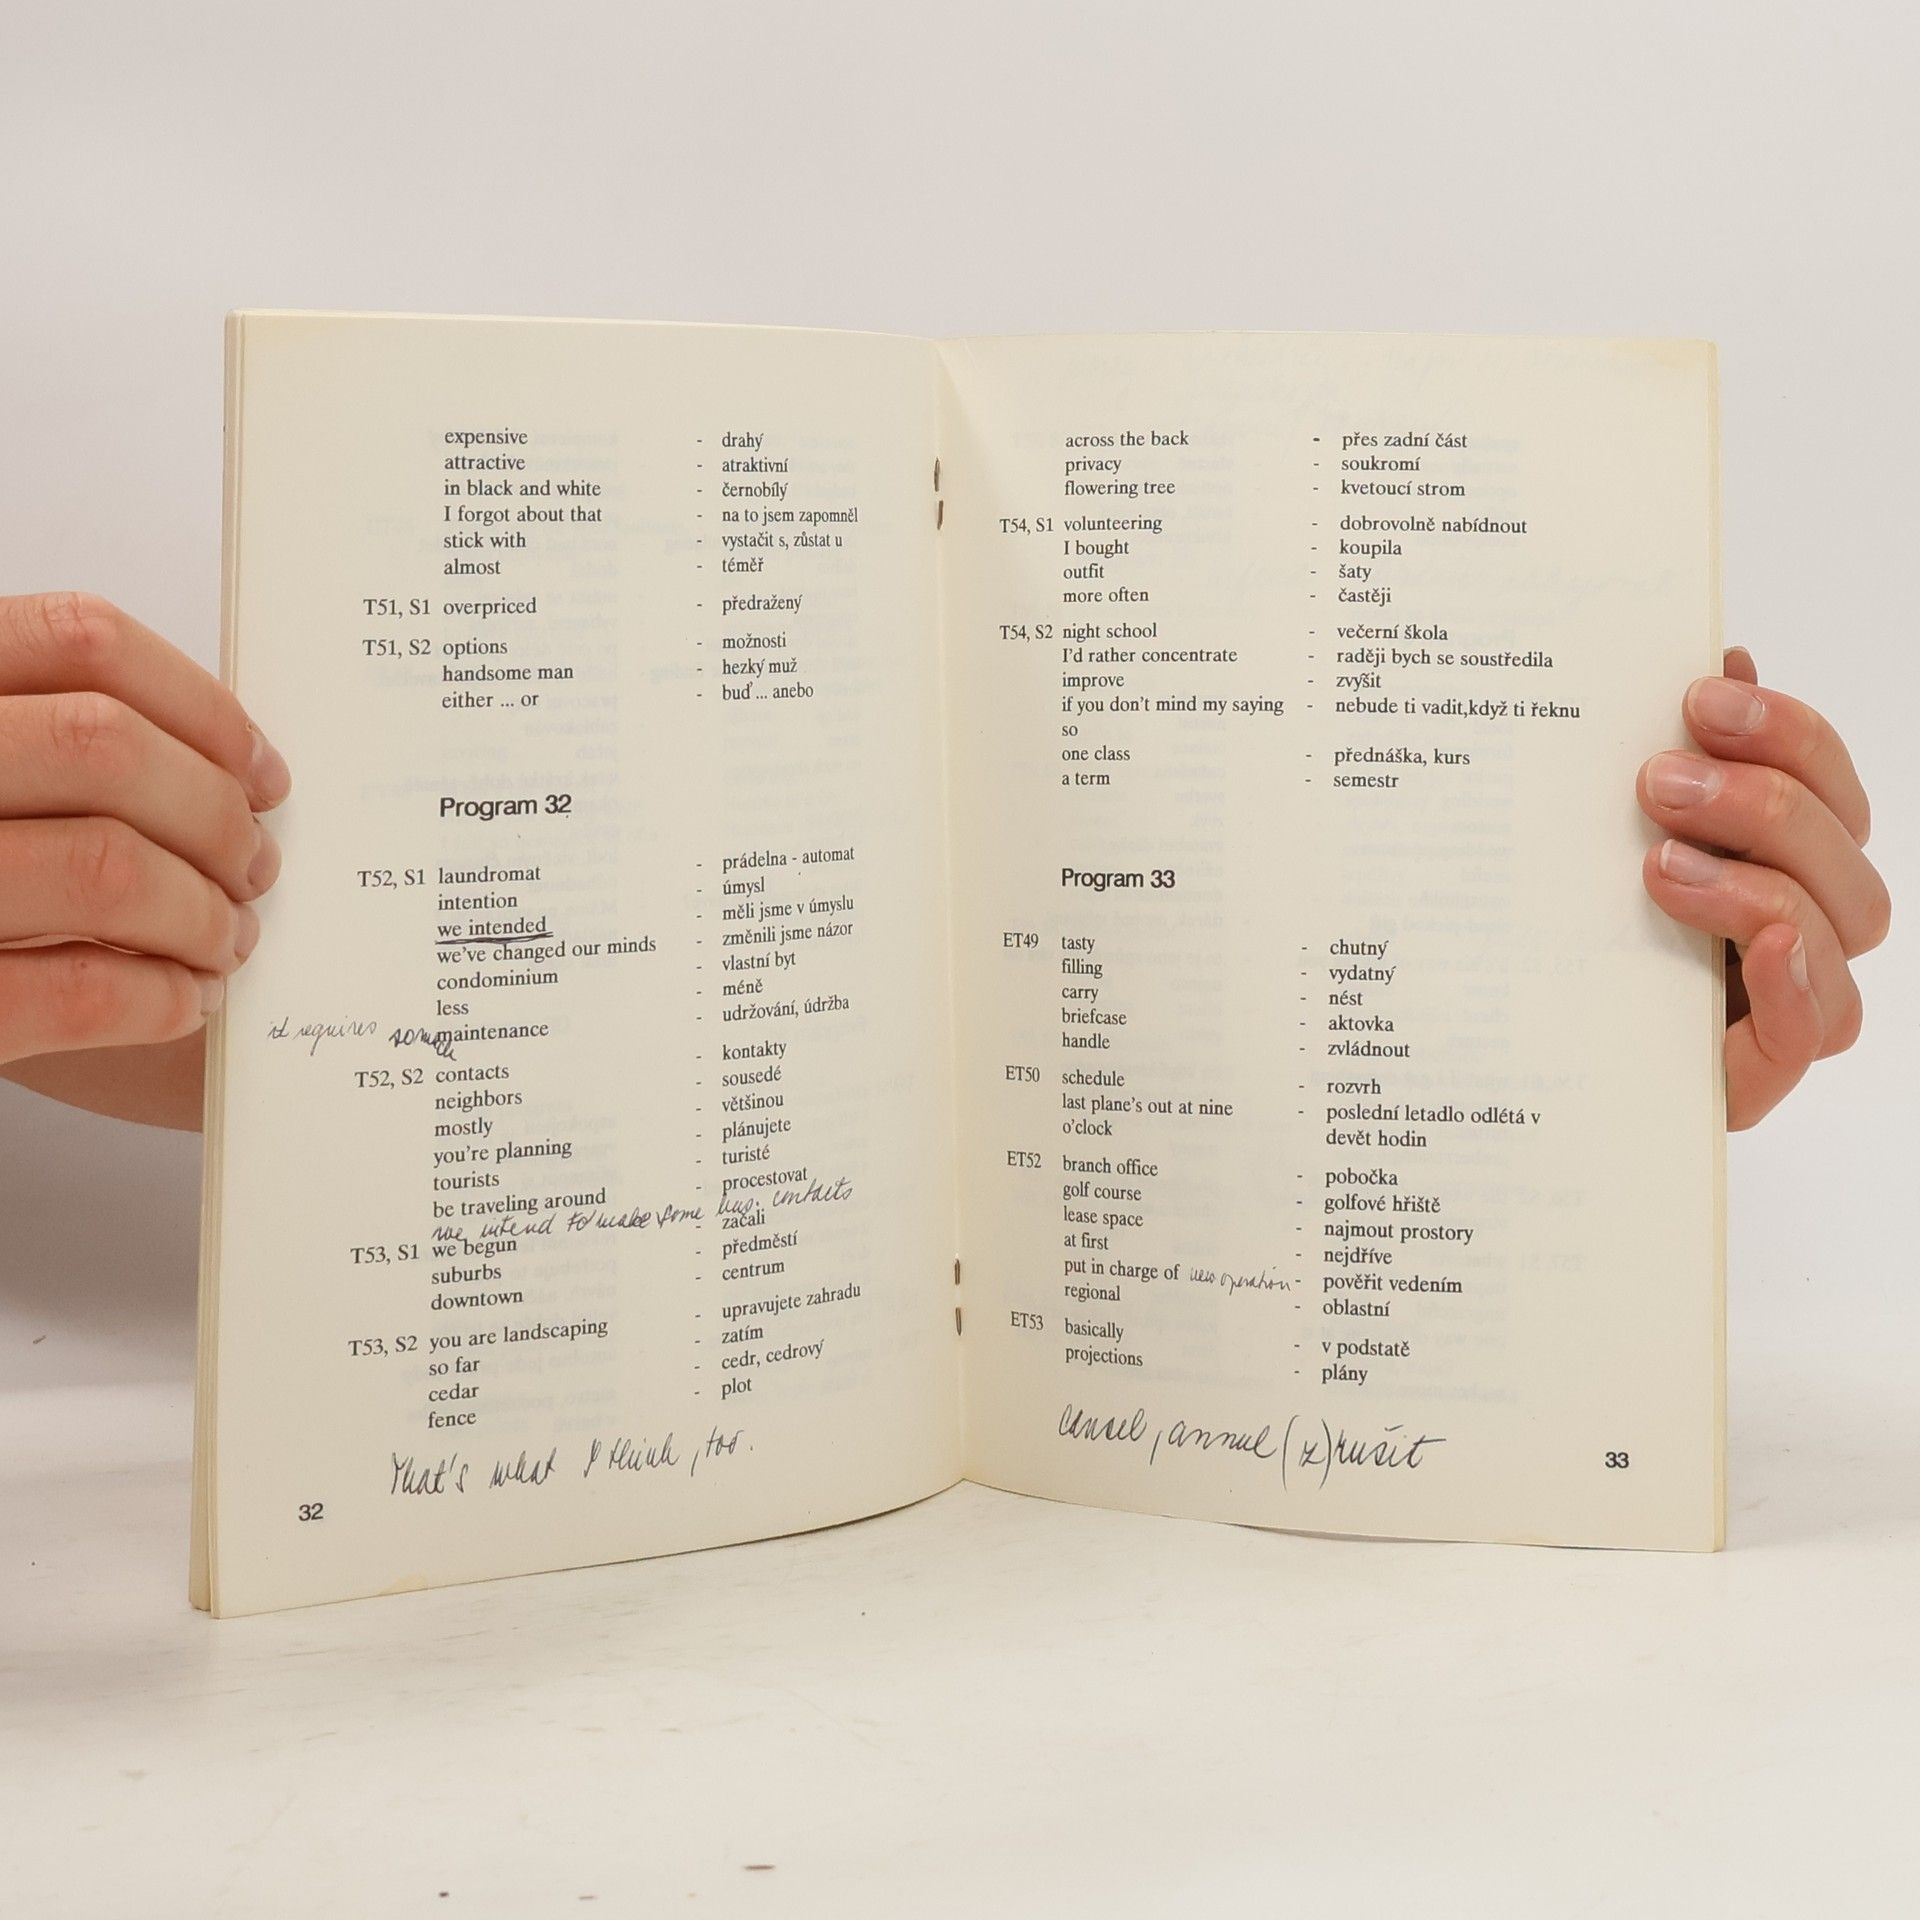 expensive - drahý
attractive - atraktivní
in black and white - černobílý
I forgot about that - na to jsem zapomněl
stick with - vystačit s, zůstat u
almost - téměř
T51, S1 overpriced - předražený
T51, S2 options - možnosti
handsome man - hezký muž
either ... or - buď ... anebo
Program 32
T52, S1 laundromat - prádelna - automat
intention - úmysl
we intended - měli jsme v úmyslu
we've changed our minds - změnili jsme názor
condominium - vlastní byt
less - méně
it requires maintenance - udržování, údržba
T52, S2 contacts - kontakty
neighbors - sousedé
mostly - většinou
you're planning - plánujete
tourists - turisté
be traveling around - procestovat
we intend to make some bus. contacts
T53, S1 we begun - začali
suburbs - předměstí
downtown - centrum
T53, S2 you are landscaping - upravujete zahradu
so far - zatím
cedar - cedr, cedrový
fence - plot
That's what I think, too.
32
across the back - přes zadní část
privacy - soukromí
flowering tree - kvetoucí strom
T54, S1 volunteering - dobrovolně nabídnout
I bought - koupila
outfit - šaty
more often - častěji
T54, S2 night school - večerní škola
I'd rather concentrate - raději bych se soustředila
improve - zvýšit
if you don't mind my saying - nebude ti vadit,když ti řeknu
so
one class - přednáška, kurs
a term - semestr
Program 33
ET49 tasty - chutný
filling - vydatný
carry - nést
briefcase - aktovka
handle - zvládnout
ET50 schedule - rozvrh
last plane's out at nine - poslední letadlo odlétá v
o'clock devět hodin
ET52 branch office - pobočka
golf course - golfové hřiště
lease space - najmout prostory
at first - nejdříve
put in charge of new operation - pověřit vedením
regional - oblastní
ET53 basically - v podstatě
projections - plány
cansel, annul (z)rušit
33